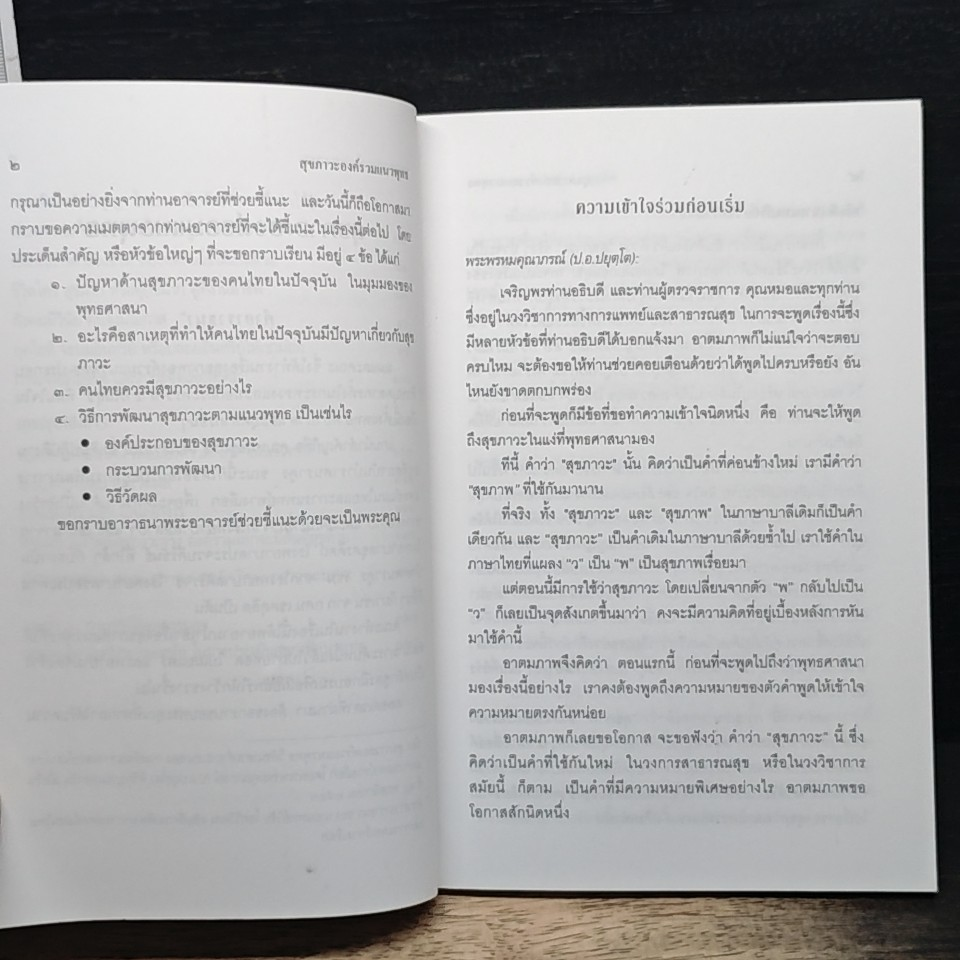 ๒
สุขภาวะองค์รวมแนวพุทธ
กรุณาเป็นอย่างยิ่งจากท่านอาจารย์ที่ช่วยชี้แนะ และวันนี้ก็ถือโอกาสมา
กราบขอความเมตตาจากท่านอาจารย์ที่จะได้ชี้แนะในเรื่องนี้ต่อไป โดย
ประเด็นสำคัญ หรือหัวข้อใหญ่ๆ ที่จะขอกราบเรียน มีอยู่ ๔ ข้อ ได้แก่
๑. ปัญหาด้านสุขภาวะของคนไทยในปัจจุบัน ในมุมมองของ
พุทธศาสนา
๒. อะไรคือสาเหตุที่ทำให้คนไทยในปัจจุบันมีปัญหาเกี่ยวกับสุข
ภาวะ
๓. คนไทยควรมีสุขภาวะอย่างไร
๔. วิธีการพัฒนาสุขภาวะตามแนวพุทธ เป็นเช่นไร
● องค์ประกอบของสุขภาวะ
● กระบวนการพัฒนา
● วิธีวัดผล
ขอกราบอาราธนาพระอาจารย์ช่วยชี้แนะด้วยจะเป็นพระคุณ
ความเข้าใจร่วมก่อนเริ่ม
พระพรหมคุณาภรณ์ (ป.อ.ปยุตฺโต):
เจริญพรท่านอธิบดี และท่านผู้ตรวจราชการ คุณหมอและทุกท่าน
ซึ่งอยู่ในวงวิชาการทางการแพทย์และสาธารณสุข ในการจะพูดเรื่องนี้ซึ่ง
มีหลายหัวข้อที่ท่านอธิบดีได้บอกแจ้งมา อาตมภาพก็ไม่แน่ใจว่าจะตอบ
ครบไหม จะต้องขอให้ท่านช่วยคอยเตือนด้วยว่าได้พูดไปครบหรือยัง อัน
ไหนยังขาดตกบกพร่อง
ก่อนที่จะพูดก็มีข้อที่ขอทำความเข้าใจนิดหนึ่ง คือ ท่านจะให้พูด
ถึงสุขภาวะในแง่ที่พุทธศาสนามอง
ทีนี้ คำว่า "สุขภาวะ" นั้น คิดว่าเป็นคำที่ค่อนข้างใหม่ เรามีคำว่า
"สุขภาพ" ที่ใช้กันมานาน
ที่จริง ทั้ง "สุขภาวะ" และ "สุขภาพ" ในภาษาบาลีเดิมก็เป็นคำ
เดียวกัน และ "สุขภาวะ" เป็นคำเดิมในภาษาบาลีด้วยซ้ำไป เราใช้คำใน
ภาษาไทยที่แผลง "ว" เป็น "พ" เป็นสุขภาพเรื่อยมา
แต่ตอนนี้มีการใช้ว่าสุขภาวะ โดยเปลี่ยนจากตัว "พ" กลับไปเป็น
"ว" ก็เลยเป็นจุดสังเกตขึ้นมาว่า คงจะมีความคิดที่อยู่เบื้องหลังการหัน
มาใช้คำนี้
อาตมภาพจึงคิดว่า ตอนแรกนี้ ก่อนที่จะพูดไปถึงว่าพุทธศาสนา
มองเรื่องนี้อย่างไร เราคงต้องพูดถึงความหมายของตัวคำพูดให้เข้าใจ
ความหมายตรงกันหน่อย
อาตมภาพก็เลยขอโอกาส จะขอฟังว่า คำว่า "สุขภาวะ" นี้ ซึ่ง
คิดว่าเป็นคำที่ใช้กันใหม่ ในวงการสาธารณสุข หรือในวงวิชาการ
สมัยนี้ ก็ตาม เป็นคำที่มีความหมายพิเศษอย่างไร อาตมภาพขอ
โอกาสสักนิดหนึ่ง